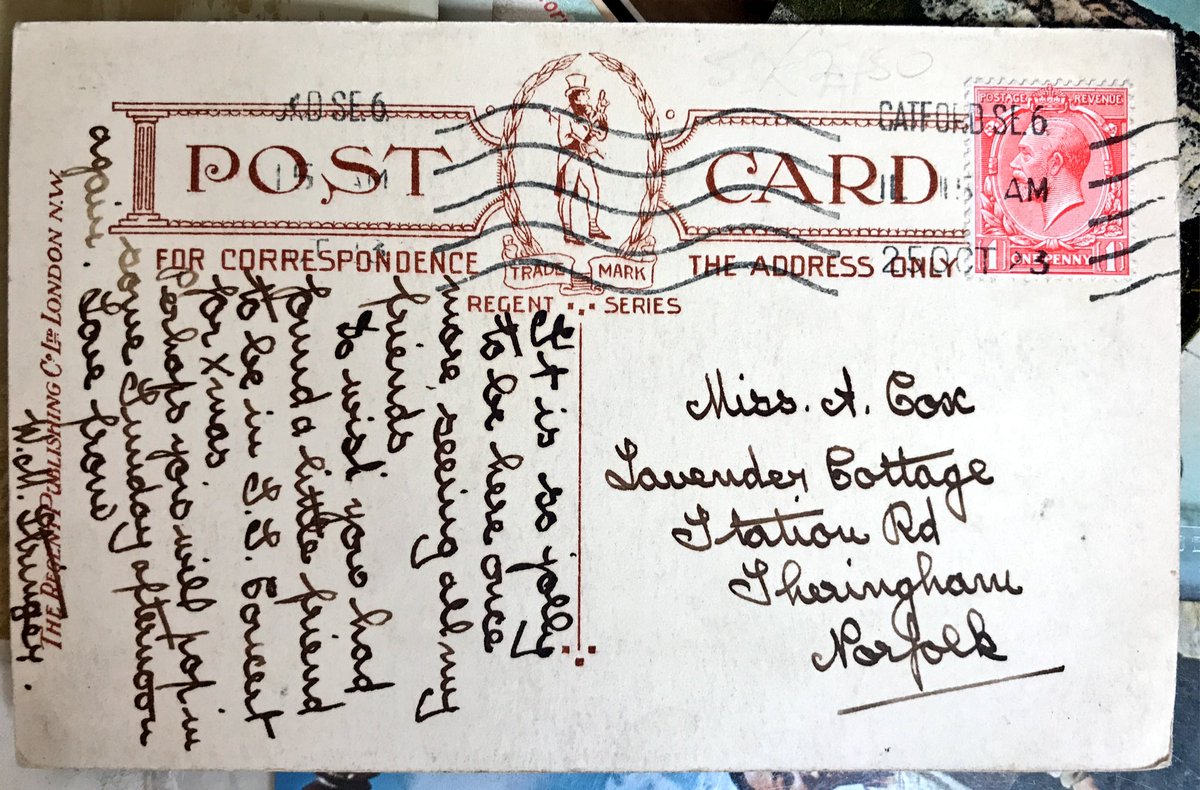 POST CARD
FOR CORRESPONDENCE THE ADDRESS ONLY
TRADE MARK
REGENT SERIES
CATFORD SE.6.
11 15 AM
25 OCT
D SE.6.
15 AM
POSTAGE REVENUE
ONE PENNY
THE REGENT PUBLISHING Co Ltd LONDON N.W.
It is so jolly
to be here once
more, seeing all my
friends
I wish you had
found a little friend
to be in S.S. Concert
for Xmas
Perhaps you will pop in
some Sunday afternoon
again. Love from
W.M. Stringer.
Miss. A. Cox
Lavender Cottage
Station Rd
Sheringham
Norfolk